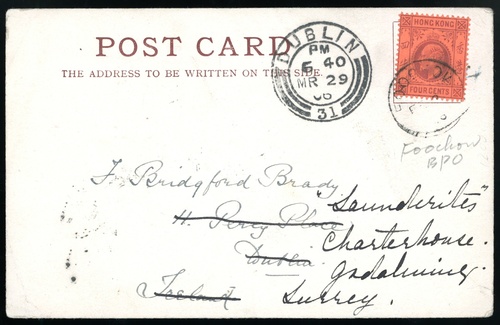 POST CARD
THE ADDRESS TO BE WRITTEN ON THIS SIDE.
DUBLIN
PM
5 40
MR 29
06
31
HONG KONG
FOUR CENTS
Foochow
BPO
F. Bridgford Brady
"Saunderites"
11. Percy Place
Charterhouse.
Dublin.
Godalming.
Ireland
Surrey.